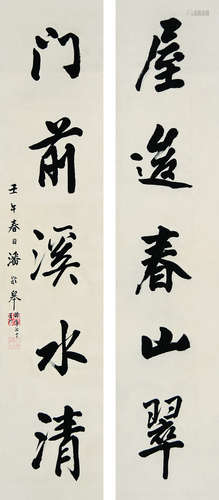 屋春山翠
门前溪水清
壬午春日潘龄皋